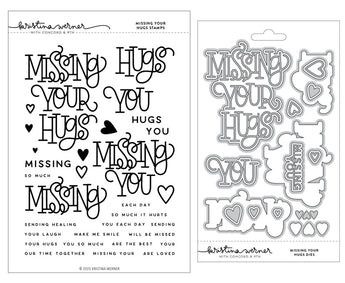 kristina werner
WITH CONCORD & 9TH
MISSING YOUR
HUGS STAMPS
MISSING
HUGS
YOUR
YOU
HUGS
HUGS
YOU
MISSING
SO MUCH
MISSING
YOU
MISSING
EACH DAY
SO MUCH IT HURTS
SENDING HEALING
YOU EACH DAY
SENDING
YOUR LAUGH
MAKE ME SMILE
WILL BE MISSED
YOUR HUGS
YOU SO MUCH
ARE THE BEST
YOUR
OUR TIME TOGETHER
MISSING YOUR
ARE LOVED
© 2025 KRISTINA WERNER
MISSING
YOUR
HUGS
YOU
MISSING
YOU
kristina werner
WITH CONCORD & 9TH
MISSING YOUR
HUGS DIES